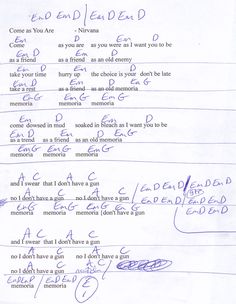 Em D Em D / Em D Em D
Come as You Are - Nirvana
Em D Em D
Come as you are as you were as I want you to be
Em D Em D
as a friend as a friend as an old enemy
Em D Em D
take your time hurry up the choice is your don't be late
Em D Em D
take a rest as a friend as an old
Em G Em G Em G
memoria memoria memoria
Em D Em D
come dowsed in mud soaked in bleach as I want you to be
Em D Em D
as a trend as a friend as an old
Em G Em G Em G
memoria memoria memoria
A C
and I swear that I don't have a gun
A C A C
no I don't have a gun no I don't have a gun
Em G Em G Em G
memoria memoria memoria [don't have a gun)
/ Em D Em D / Em D Em D
/ Em D Em D
Em D Em D
A C
and I swear that I don't have a gun
A C A C
no I don't have a gun no I don't have a gun
A C A C
no I don't have a gun
Em D Em D / Em D Em D / E
memoria memoria